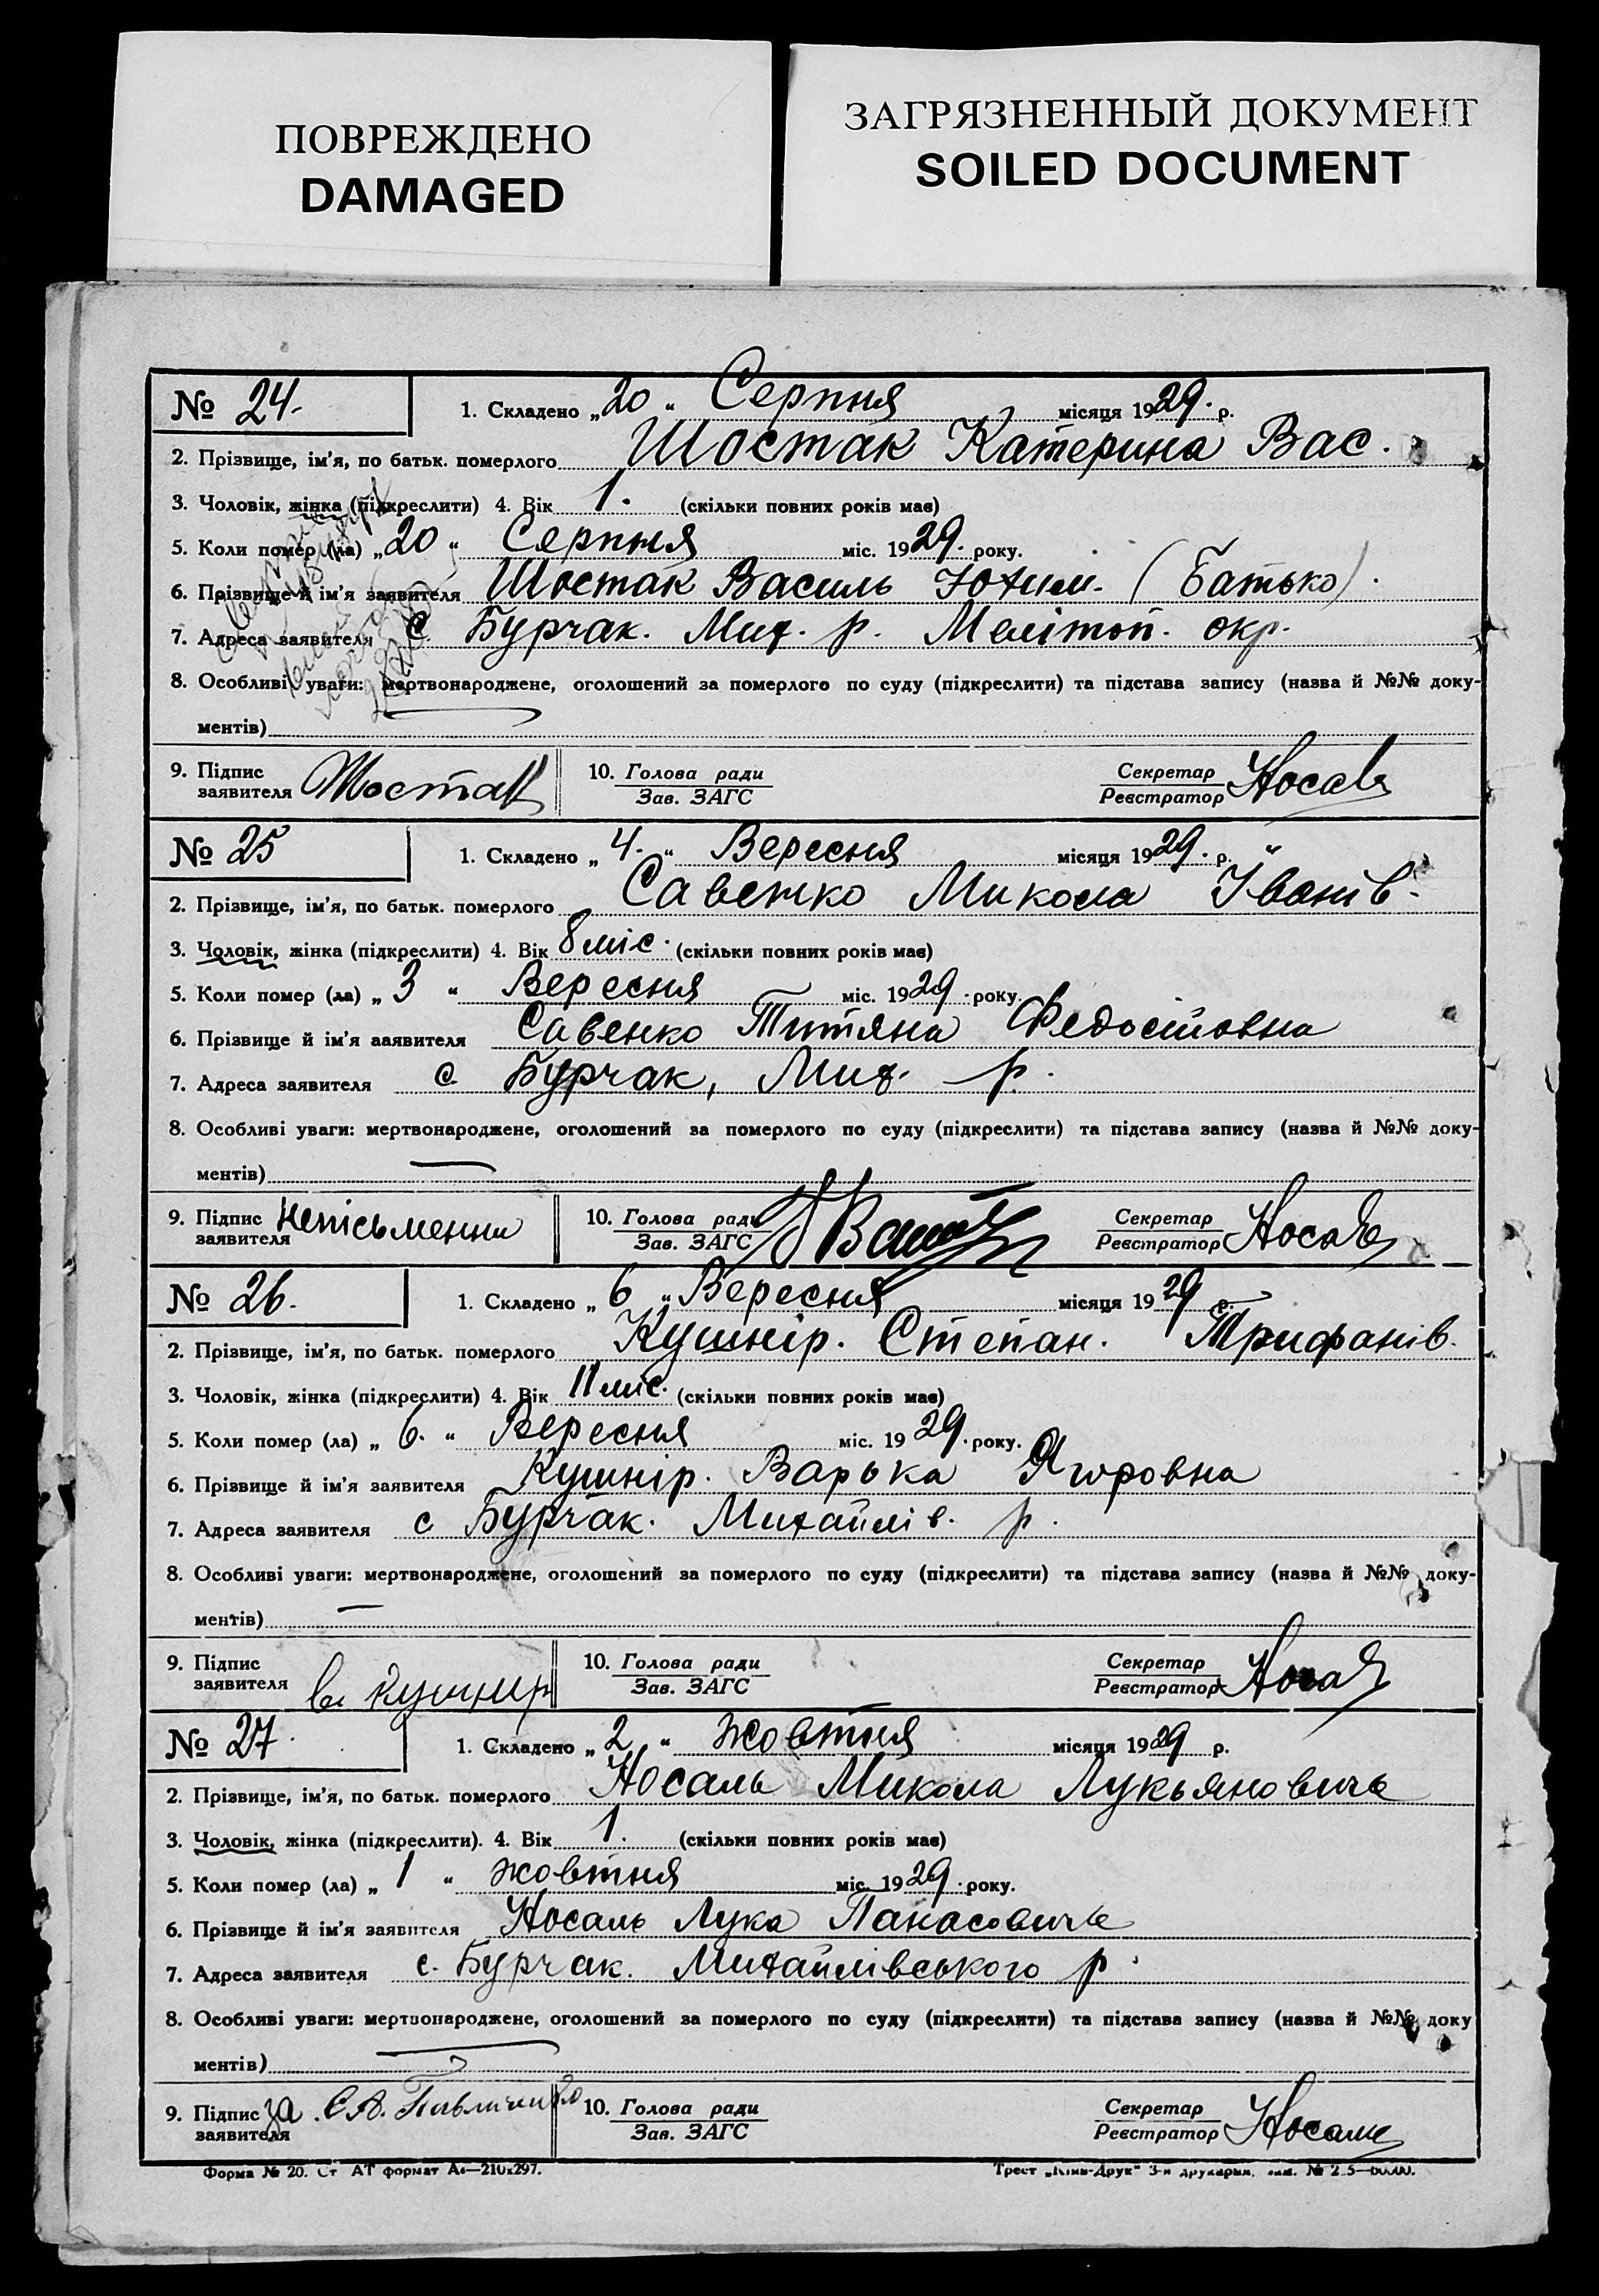 ПОВРЕЖДЕНО
DAMAGED
ЗАГРЯЗНЕННЫЙ ДОКУМЕНТ
SOILED DOCUMENT
№ 24.
1. Складено „20“ Серпня місяця 1929. р.
2. Прізвище, ім'я, по батьк. померлого Шостак Катерина Вас.
3. Чоловік, жінка (підкреслити) 4. Вік 1. (скільки повних років має)
5. Коли помер (ла) „20“ Серпня міс. 1929. року.
6. Прізвище й ім'я заявителя Шостак Василь Юхим. (Батько).
7. Адреса заявителя с. Бурчак. Мих. р. Мелітоп. окр.
8. Особливі уваги: мертвонароджене, оголошений за померлого по суду (підкреслити) та підстава запису (назва й №№ доку-
ментів)
9. Підпис заявителя Шостак
10. Голова ради
Зав. ЗАГС
Секретар
Реєстратор Носаль
№ 25
1. Складено „4.“ Вересня місяця 1929. р.
2. Прізвище, ім'я, по батьк. померлого Савенко Микола Іванів.
3. Чоловік, жінка (підкреслити) 4. Вік 8 міс. (скільки повних років має)
5. Коли помер (ла) „3“ Вересня міс. 1929. року.
6. Прізвище й ім'я заявителя Савенко Титяна Федосіювна
7. Адреса заявителя с. Бурчак, Мих. р.
8. Особливі уваги: мертвонароджене, оголошений за померлого по суду (підкреслити) та підстава запису (назва й №№ доку-
ментів)
9. Підпис заявителя Непісьменни
10. Голова ради
Зав. ЗАГС
Секретар
Реєстратор Носаль
№ 26.
1. Складено „6“ Вересня місяця 1929 р.
2. Прізвище, ім'я, по батьк. померлого Кушнір. Степан. Трифанів.
3. Чоловік, жінка (підкреслити) 4. Вік 11 міс. (скільки повних років має)
5. Коли помер (ла) „6.“ Вересня міс. 1929. року.
6. Прізвище й ім'я заявителя Кушнір. Варька Ягоровна
7. Адреса заявителя с Бурчак. Михайлів. р.
8. Особливі уваги: мертвонароджене, оголошений за померлого по суду (підкреслити) та підстава запису (назва й №№ доку-
ментів)
9. Підпис заявителя Кушнир
10. Голова ради
Зав. ЗАГС
Секретар
Реєстратор Носаль
№ 27
1. Складено „2“ жовтня місяця 1929 р.
2. Прізвище, ім'я, по батьк. померлого Носаль Микола Лукьяновичь
3. Чоловік, жінка (підкреслити). 4. Вік 1. (скільки повних років має)
5. Коли помер (ла) „1“ жовтня міс. 1929. року.
6. Прізвище й ім'я заявителя Носаль Лука Панасовичь
7. Адреса заявителя с. Бурчак. Михайлівського р.
8. Особливі уваги: мертвонароджене, оголошений за померлого по суду (підкреслити) та підстава запису (назва й №№ доку
ментів)
9. Підпис заявителя за
10. Голова ради
Зав. ЗАГС
Секретар
Реєстратор Носаль
Форма № 20. Ст АТ формат А4—210х297.
Трест „Київ-Друк“ 3-я друкарня,